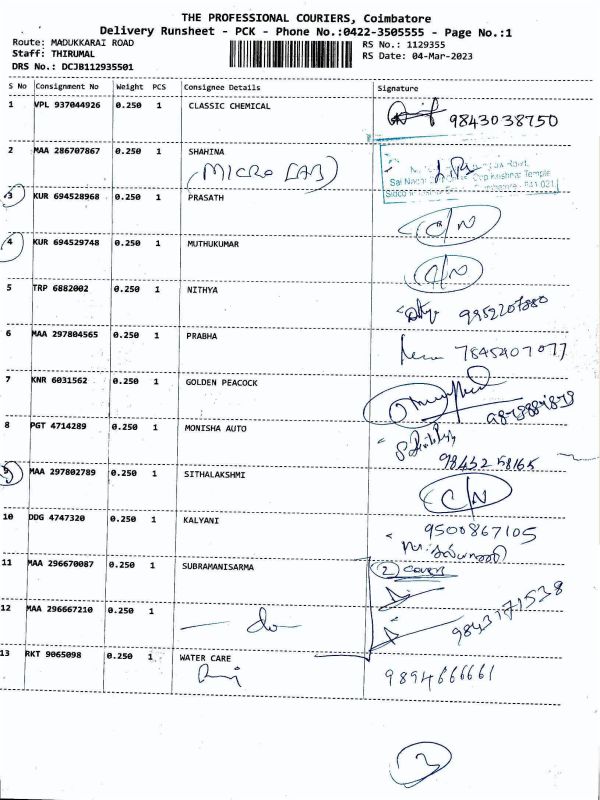 THE PROFESSIONAL COURIERS, Coimbatore
Delivery Runsheet - PCK - Phone No.:0422-3505555 - Page No.:1
Route: MADUKKARAI ROAD
RS No.: 1129355
Staff: THIRUMAL
RS Date: 04-Mar-2023
DRS No.: DCJB112935501
S No Consignment No Weight PCS Consignee Details Signature
1 VPL 937044926 0.250 1 CLASSIC CHEMICAL 9843038750
2 MAA 286707867 0.250 1 SHAHINA
(MICRO LAB)
3 KUR 694528968 0.250 1 PRASATH C/N
4 KUR 694529748 0.250 1 MUTHUKUMAR C/N
5 TRP 6882002 0.250 1 NITHYA 9952207880
6 MAA 297804565 0.250 1 PRABHA 7845407077
7 KNR 6031562 0.250 1 GOLDEN PEACOCK
8 PGT 4714289 0.250 1 MONISHA AUTO
9843258165
9 MAA 297802789 0.250 1 SITHALAKSHMI C/N
10 DDG 4747320 0.250 1 KALYANI 9500867105
11 MAA 296670087 0.250 1 SUBRAMANISARMA 2 cover
12 MAA 296667210 0.250 1 — do — 9843171538
13 RKT 9065098 0.250 1 WATER CARE 9894666661
3